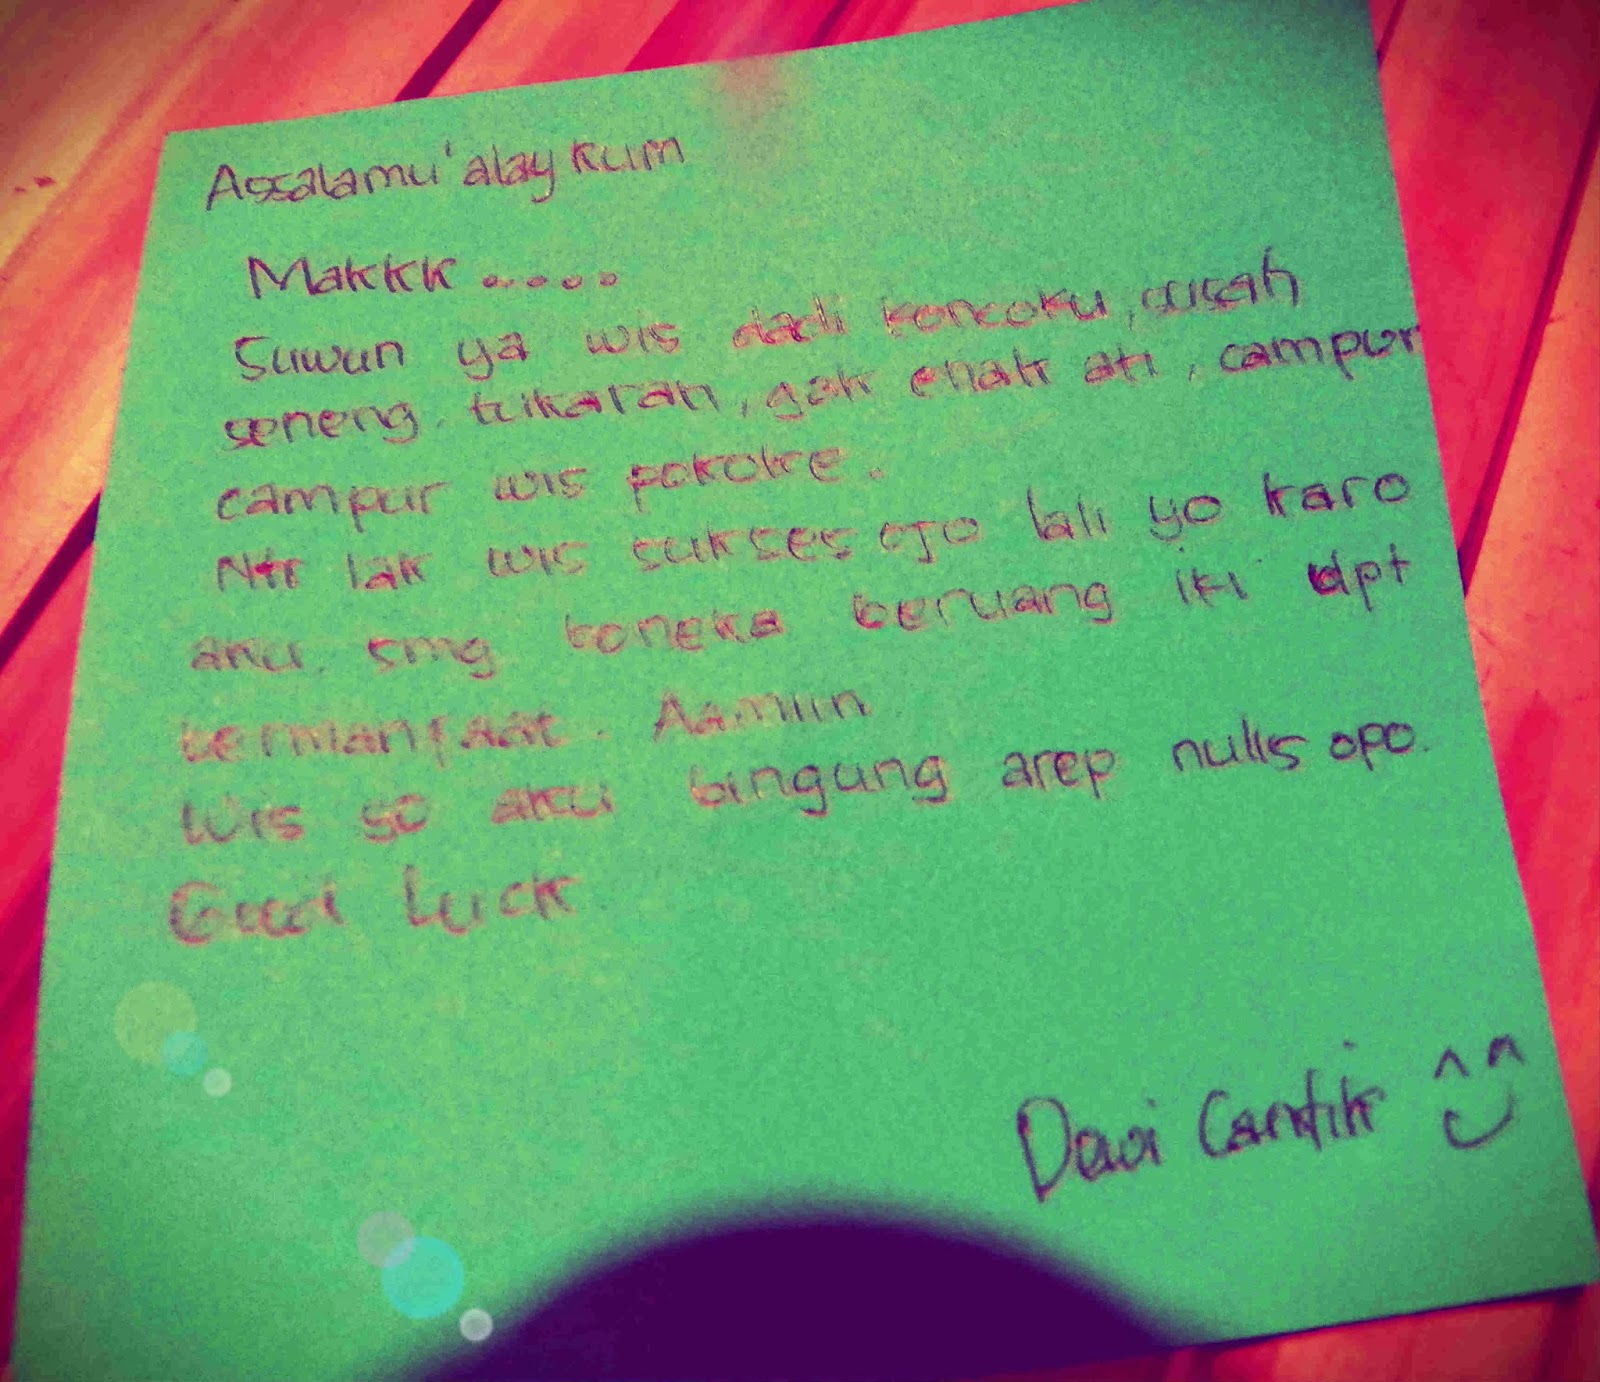 Assalamu'alaykum
Makkk.....
Suwun ya wis dadi koncoku, susah
seneng, tukaran, gak enak ati, campur
campur wis pokoke.
Ntr lak wis sukses ojo lali yo karo
aku. smg boneka beruang iki dpt
bermanfaat. Aamiin
Wis so aku bingung arep nulis opo.
Good Luck
Dewi Cantik ^^